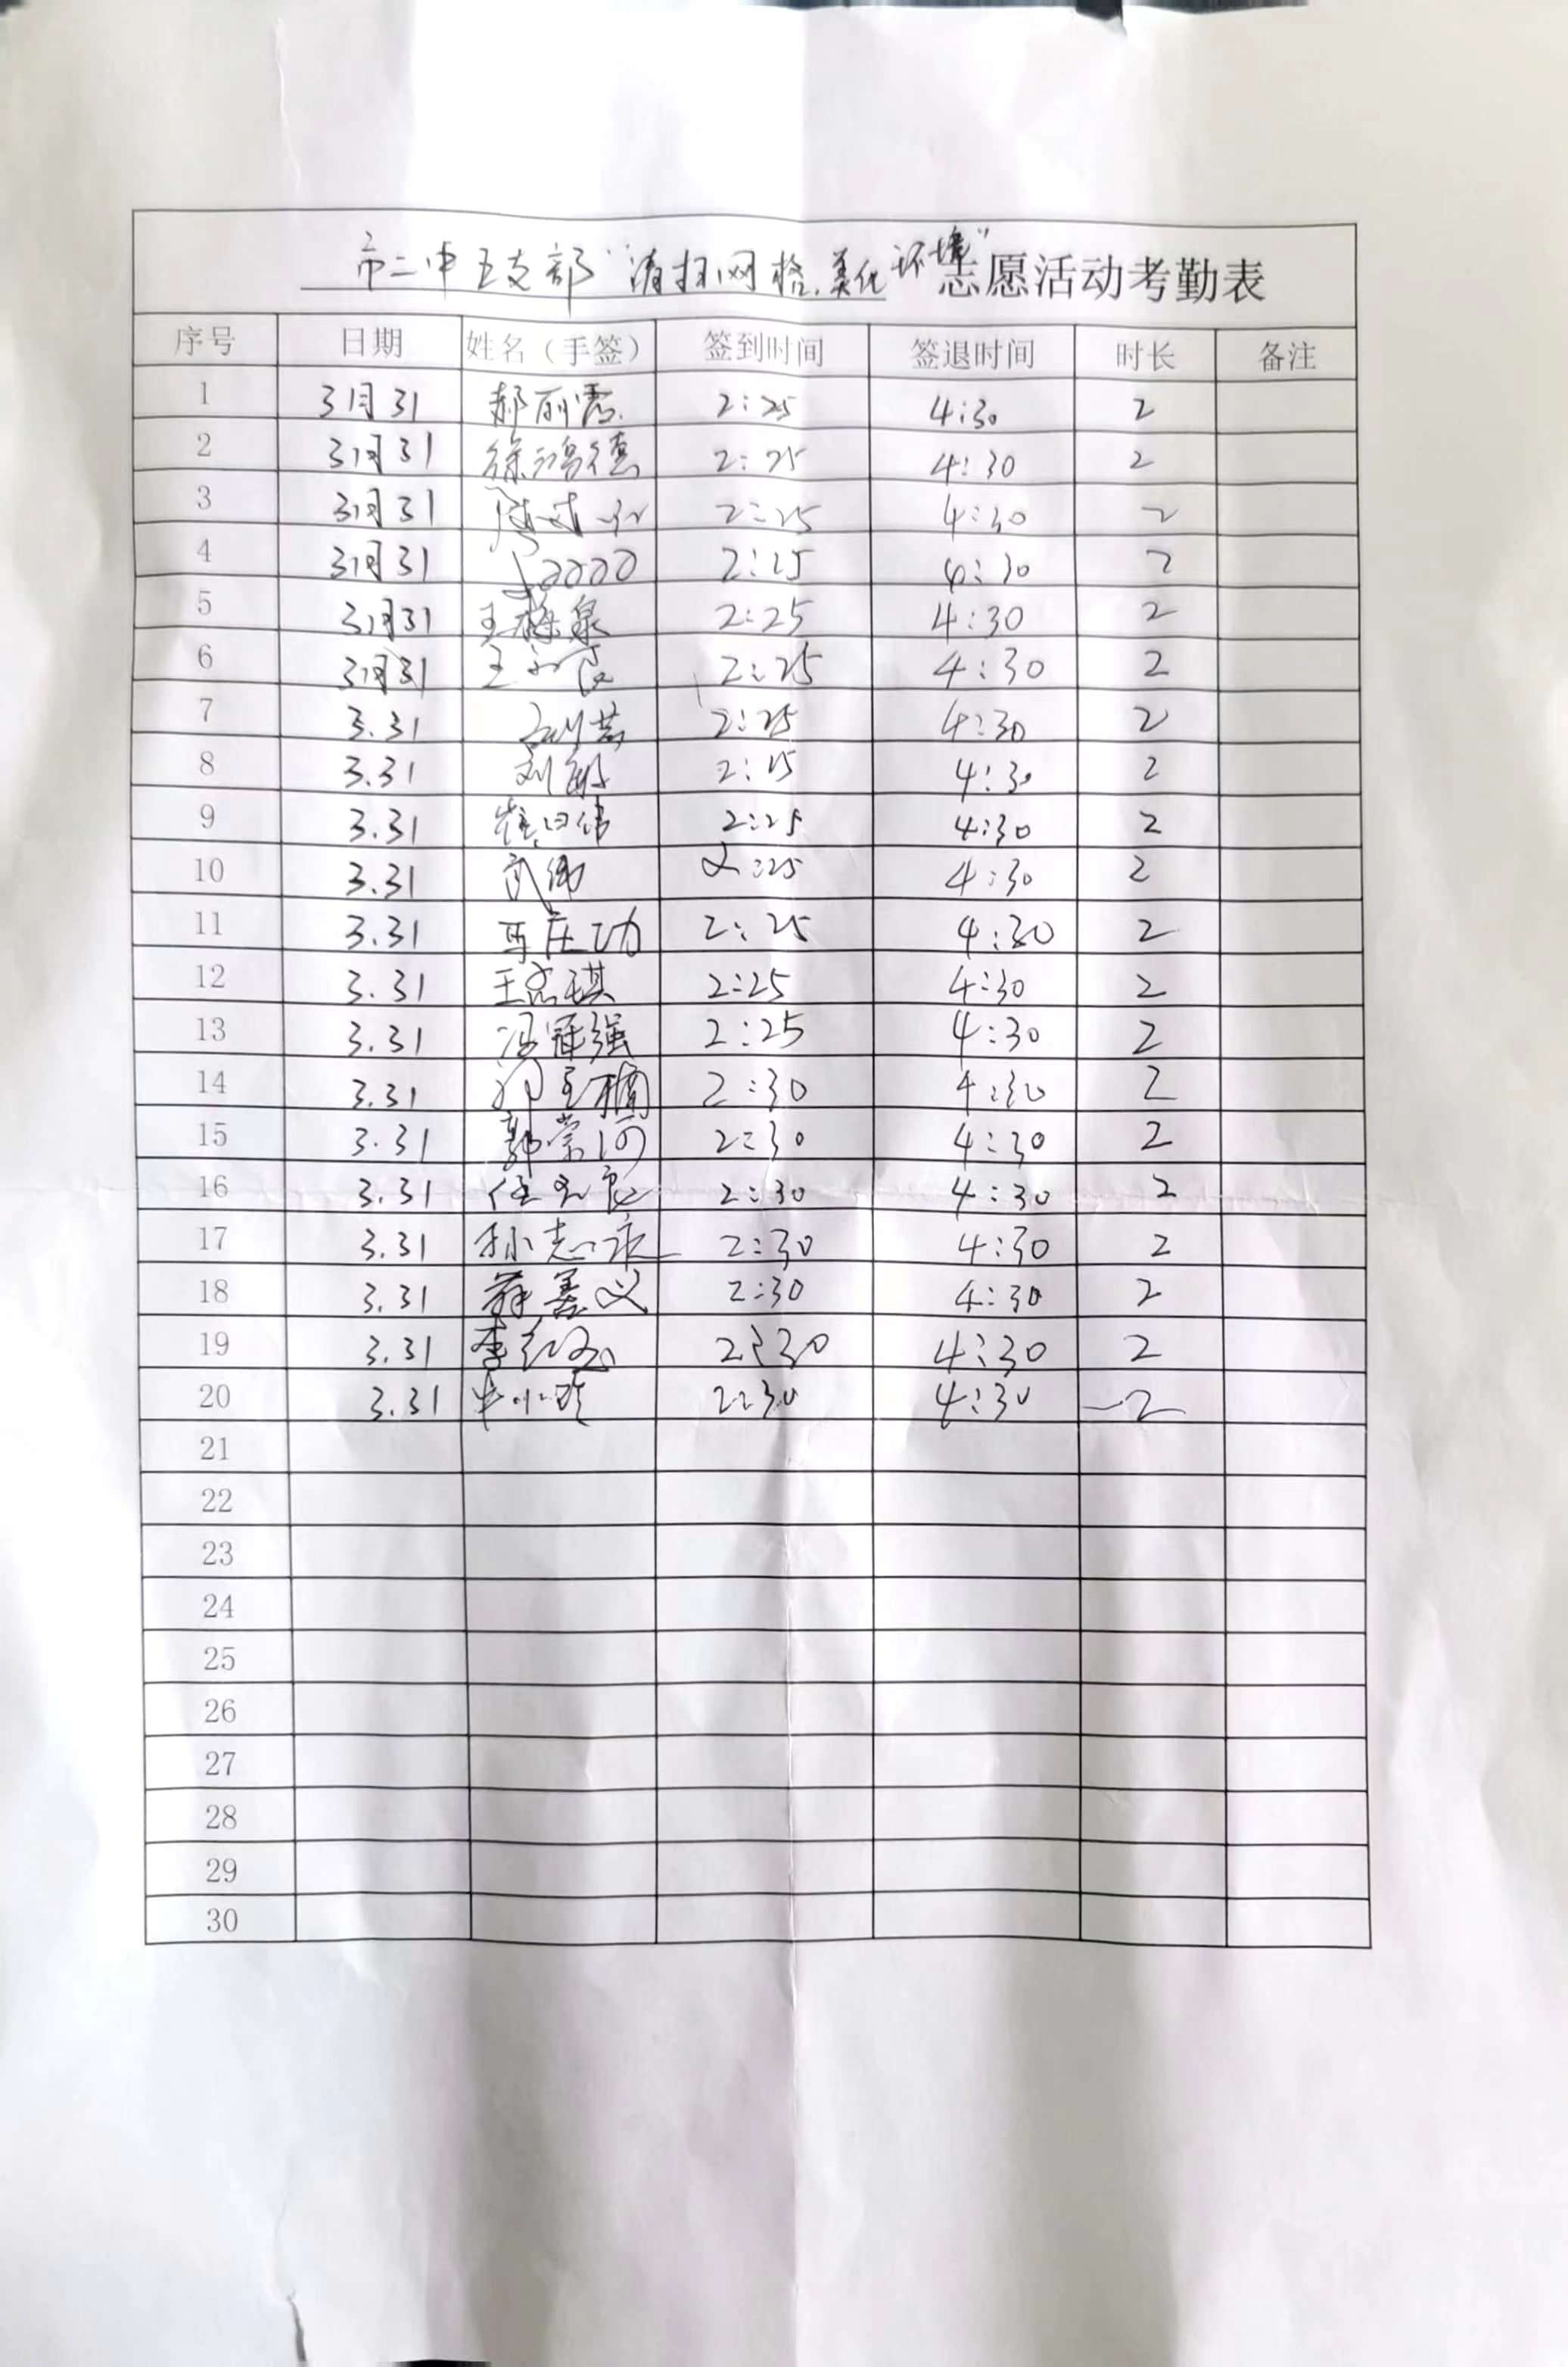 市二中五支部“清扫网格,美化环境”志愿活动考勤表
序号 日期 姓名（手签） 签到时间 签退时间 时长 备注
1 3月31 郝丽 2:25 4:30 2
2 3月31 徐鸿德 2:25 4:30 2
3 3月31 2:25 4:30 2
4 3月31 2:25 4:30 2
5 3月31 王 泉 2:25 4:30 2
6 3月31 王 2:25 4:30 2
7 3.31 2:25 4:30 2
8 3.31 刘 2:25 4:30 2
9 3.31 崔曰伟 2:25 4:30 2
10 3.31 2:25 4:30 2
11 3.31 庄功 2:25 4:30 2
12 3.31 王 琪 2:25 4:30 2
13 3.31 冯冠强 2:25 4:30 2
14 3.31 楠 2:30 4:30 2
15 3.31 郭常河 2:30 4:30 2
16 3.31 任 2:30 4:30 2
17 3.31 孙志 2:30 4:30 2
18 3.31 薛善义 2:30 4:30 2
19 3.31 李红 2:30 4:30 2
20 3.31 牛小玲 2:30 4:30 2
21
22
23
24
25
26
27
28
29
30